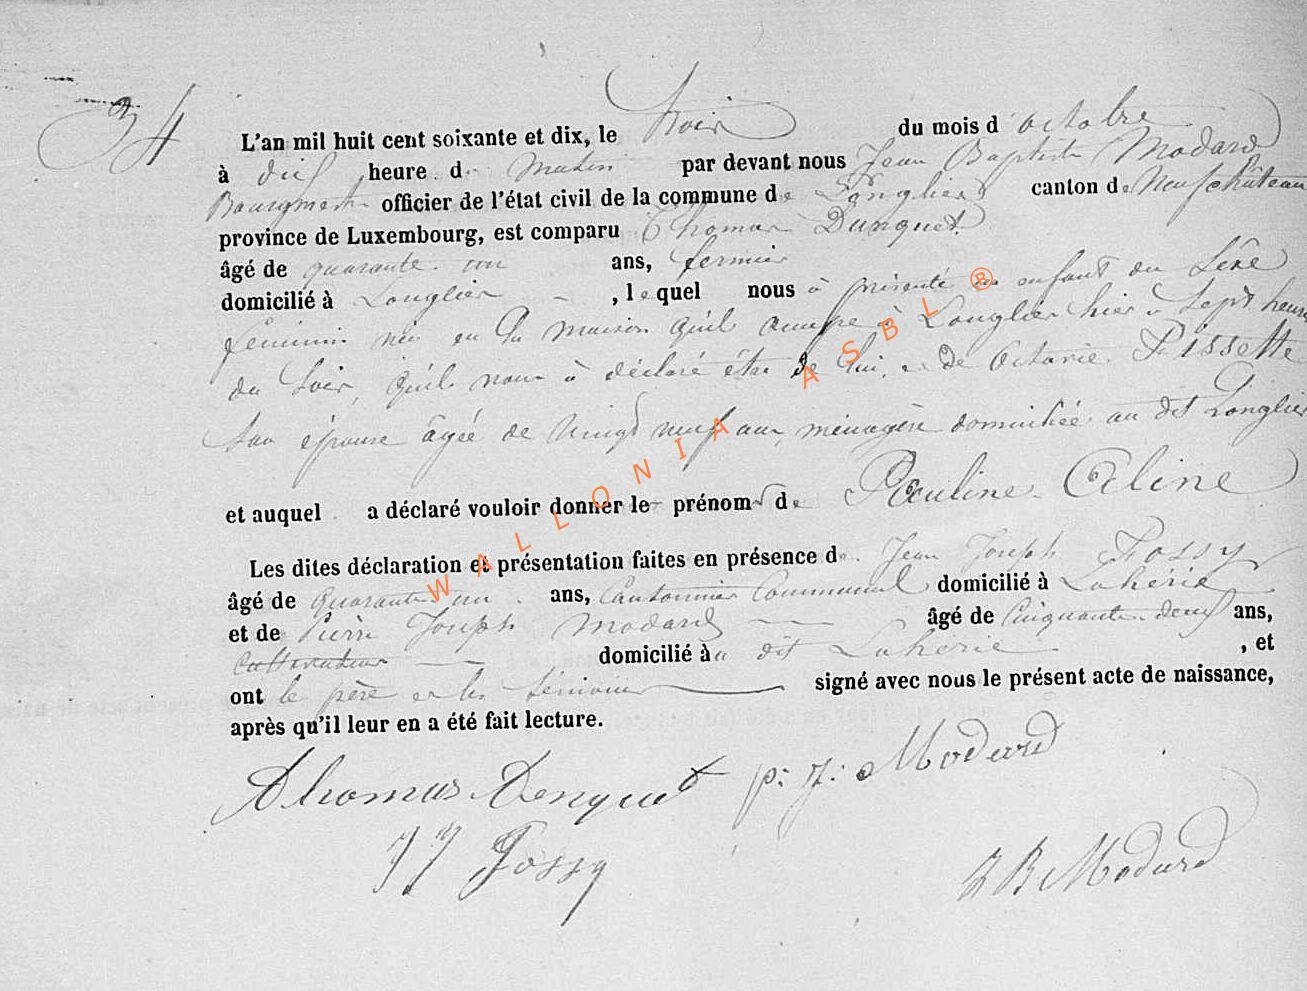 34
L'an mil huit cent soixante et dix, le trois du mois d'octobre
à dix heure. du matin par devant nous Jean Baptiste Modard
Bourgmestre officier de l'état civil de la commune de Longlier canton de Neufchâteau
province de Luxembourg, est comparu Thomas Dunquet
âgé de quarante un ans, fermier
domicilié à Longlier, lequel nous à présenté un enfant du sexe
féminin née en la maison qu'il occupe à Longlier hier à sept heures
du soir, qu'il nous à déclaré être de lui, et de Octavie Pissette
son épouse âgée de vingt neuf ans, ménagère domiciliée au dit Longlier
et auquel a déclaré vouloir donner les prénoms de Pauline Céline
Les dites déclaration et présentation faites en présence de Jean Joseph Fossy
âgé de quarante un ans, Cantonnier Communal domicilié à Lahérie
et de Pierre Joseph Modard âgé de cinquante deux ans,
Cultivateur domicilié au dit Lahérie, et
ont le père et les témoins signé avec nous le présent acte de naissance,
après qu'il leur en a été fait lecture.
Thomas Denquet p: j: Modard
JJ Fossy
JB Modard
WALLONIA ASBL ®